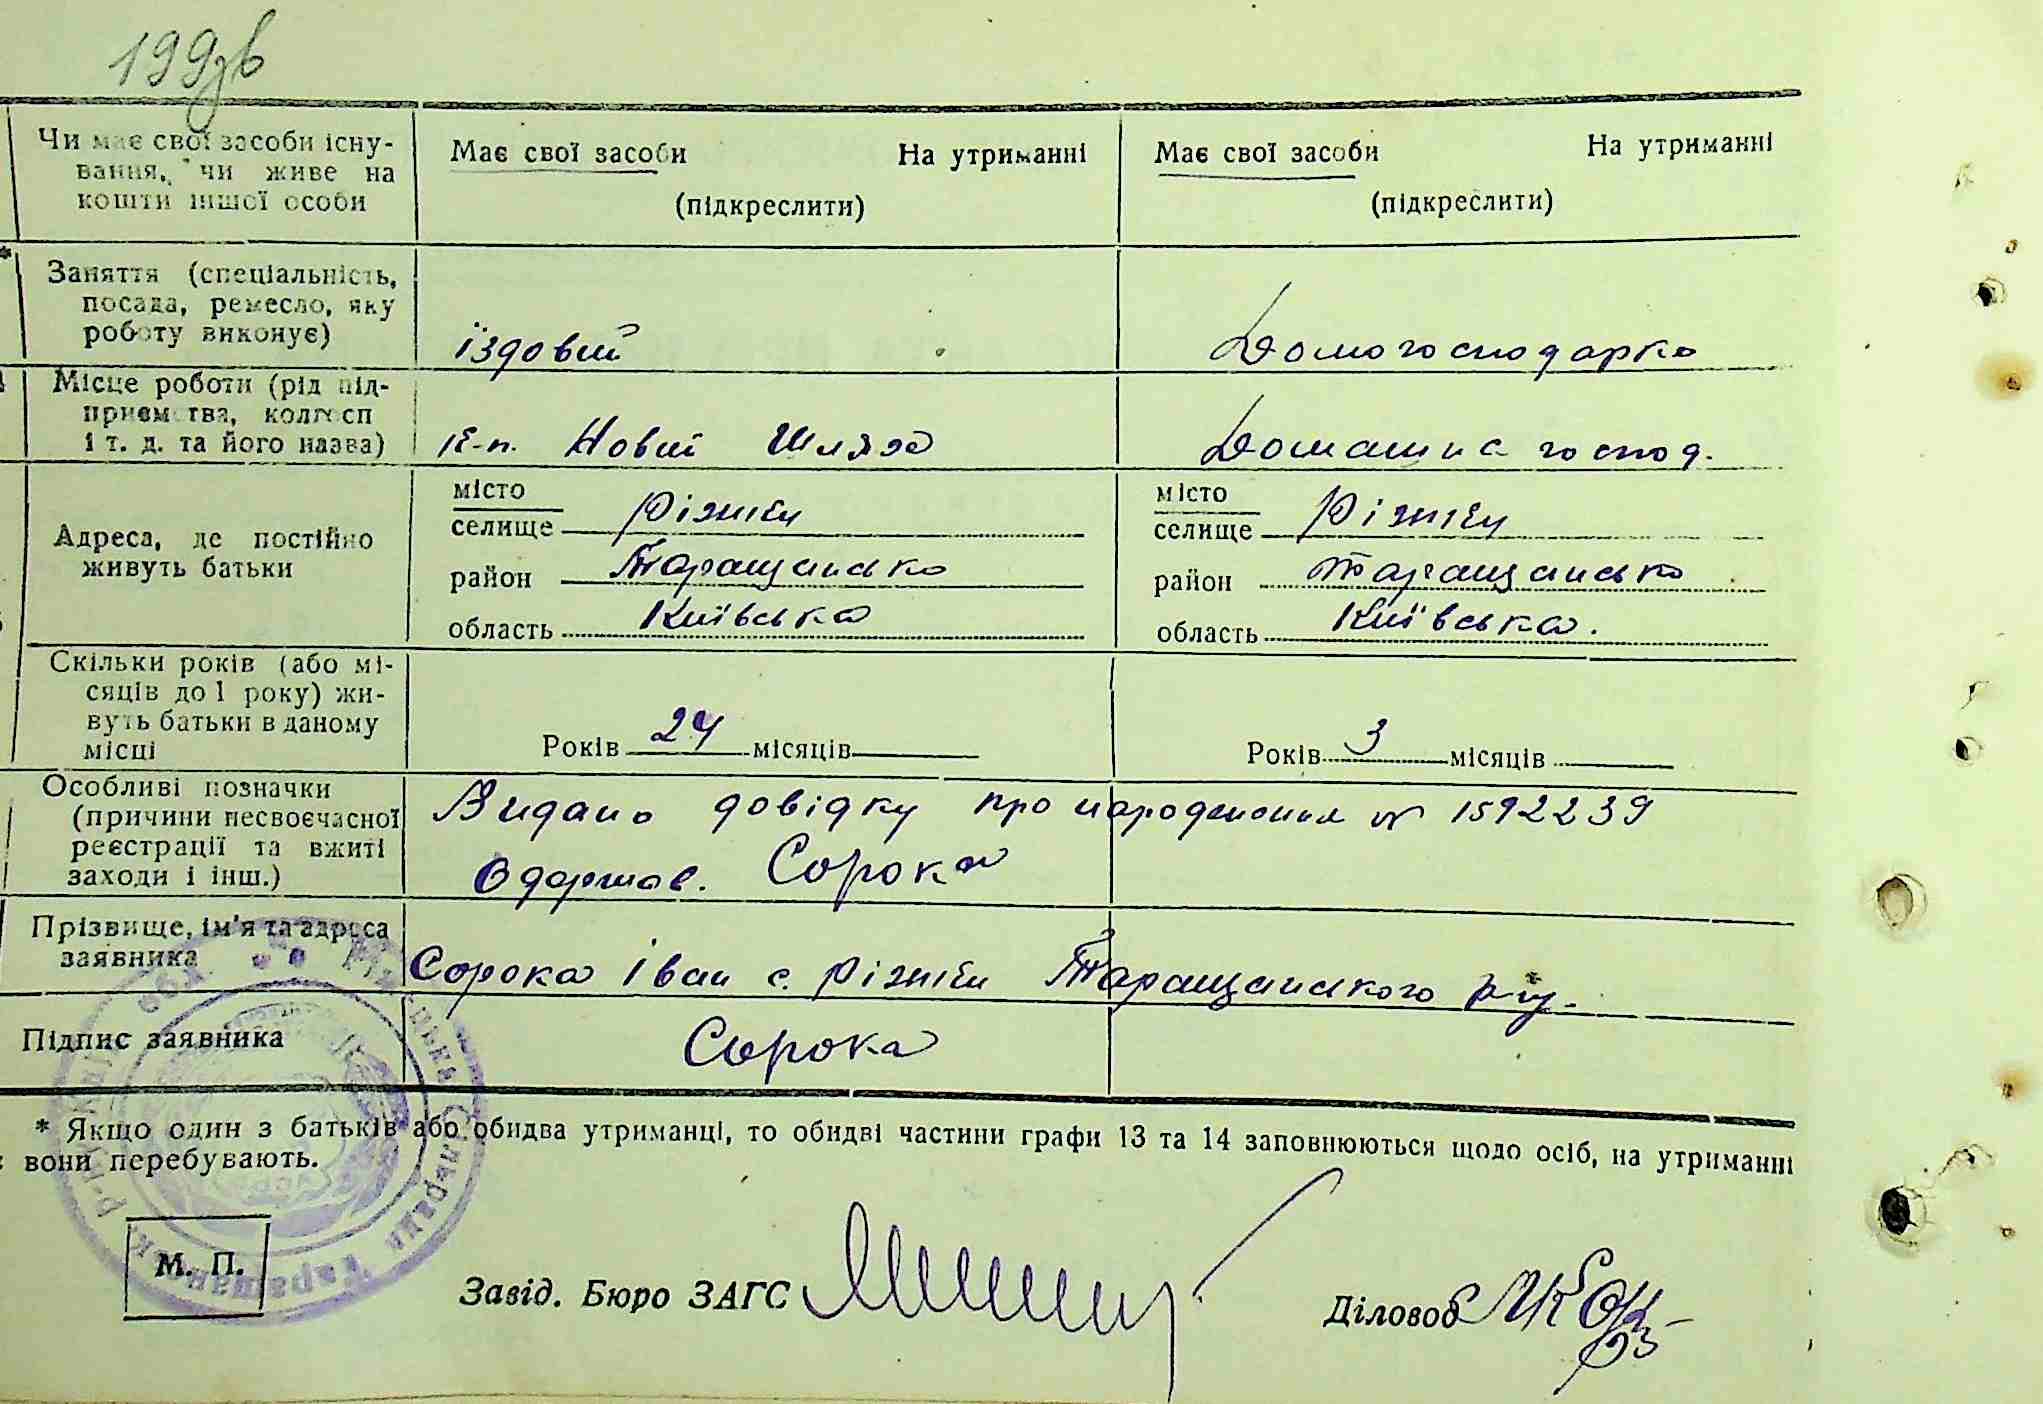 199зв
Чи має свої засоби існу-
вання, чи живе на
кошти іншої особи
Має свої засоби На утриманні
(підкреслити)
Має свої засоби На утриманні
(підкреслити)
Заняття (спеціальність,
посада, ремесло, яку
роботу виконує)
їздовий
Домогосподарка
Місце роботи (рід під-
приємства, колгосп
і т. д. та його назва)
к-п. Новий Шлях
Домашнє господ.
Адреса, де постійно
живуть батьки
місто
селище Ріжки
район Таращанська
область Київська
місто
селище Ріжки
район Таращанська
область Київська.
Скільки років (або мі-
сяців до 1 року) жи-
вуть батьки в даному
місці
Років 24 місяців
Років 3 місяців
Особливі позначки
(причини несвоєчасної
реєстрації та вжиті
заходи і інш.)
Видано довідку про народження № 1592239
Одержав. Сорока
Прізвище, ім'я та адреса
заявника
Сорока Іван с. Ріжки Таращанского р-ну.
Підпис заявника
Сорока
* Якщо один з батьків або обидва утриманці, то обидві частини графи 13 та 14 заповнюються щодо осіб, на утриманні
вони перебувають.
М. П.
Завід. Бюро ЗАГС
Діловод